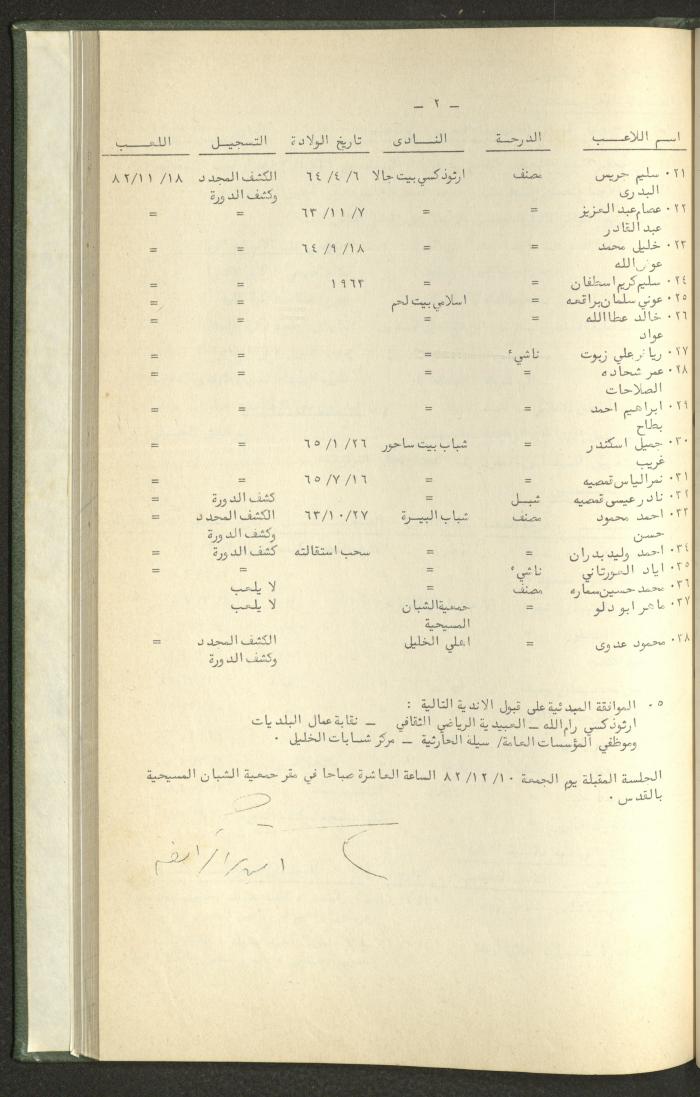 ـ ٢ ـ
اسم اللاعب الدرجة النادى تاريخ الولادة التسجيل اللعب
٢١٠ سليم جريس مصنف ارثوذكسي بيت جالا ٦٤/٤/٦ الكشف المجدد ٨٢/١١/١٨
البدرى وكشف الدورة
٢٢٠ عصام عبد العزيز = = ٦٣/١١/٧ = =
عبد القادر
٢٣٠ خليل محمد = = ٦٤/٩/١٨ = =
عوض الله
٢٤٠ سليم كريم اسطفان = = ١٩٦٣ = =
٢٥٠ عوني سلمان براقعه = اسلامي بيت لحم = =
٢٦٠ خالد عطا الله = = = =
عواد
٢٧٠ رياض علي زبوت ناشيء = = =
٢٨٠ عمر شحاده = = = =
الصلاحات
٢٩٠ ابراهيم احمد = = = =
بطاح
٣٠٠ جميل اسكندر = شباب بيت ساحور ٦٥/١/٢٦ = =
غريب
٣١٠ نمر الياس قمصيه = = ٦٥/٧/١٦ = =
٣٢٠ نادر عيسى قمصيه شبل = كشف الدورة =
٣٣٠ احمد محمود مصنف شباب البيرة ٦٣/١٠/٢٧ الكشف المجدد =
حسن وكشف الدورة
٣٤٠ احمد وليد بدران = = سحب استقالته كشف الدورة =
٣٥٠ اياد العورتاني ناشيء = = =
٣٦٠ محمد حسين سماره مصنف = لا يلعب
٣٧٠ ماهر ابو دلو = جمعية الشبان لا يلعب
المسيحية
٣٨٠ محمود عدوى = اهلي الخليل الكشف المجدد =
وكشف الدورة
٥٠ الموافقة المبدئية على قبول الاندية التالية :
ارثوذكسي رام الله ـ العبيدية الرياضي الثقافي ـ نقابة عمال البلديات
وموظفي المؤسسات العامة/ سيلة الحارثية ـ مركز شبابات الخليل ٠
الجلسة المقبلة يوم الجمعة ٨٢/١٢/١٠ الساعة العاشرة صباحا في مقر جمعية الشبان المسيحية
بالقدس ٠